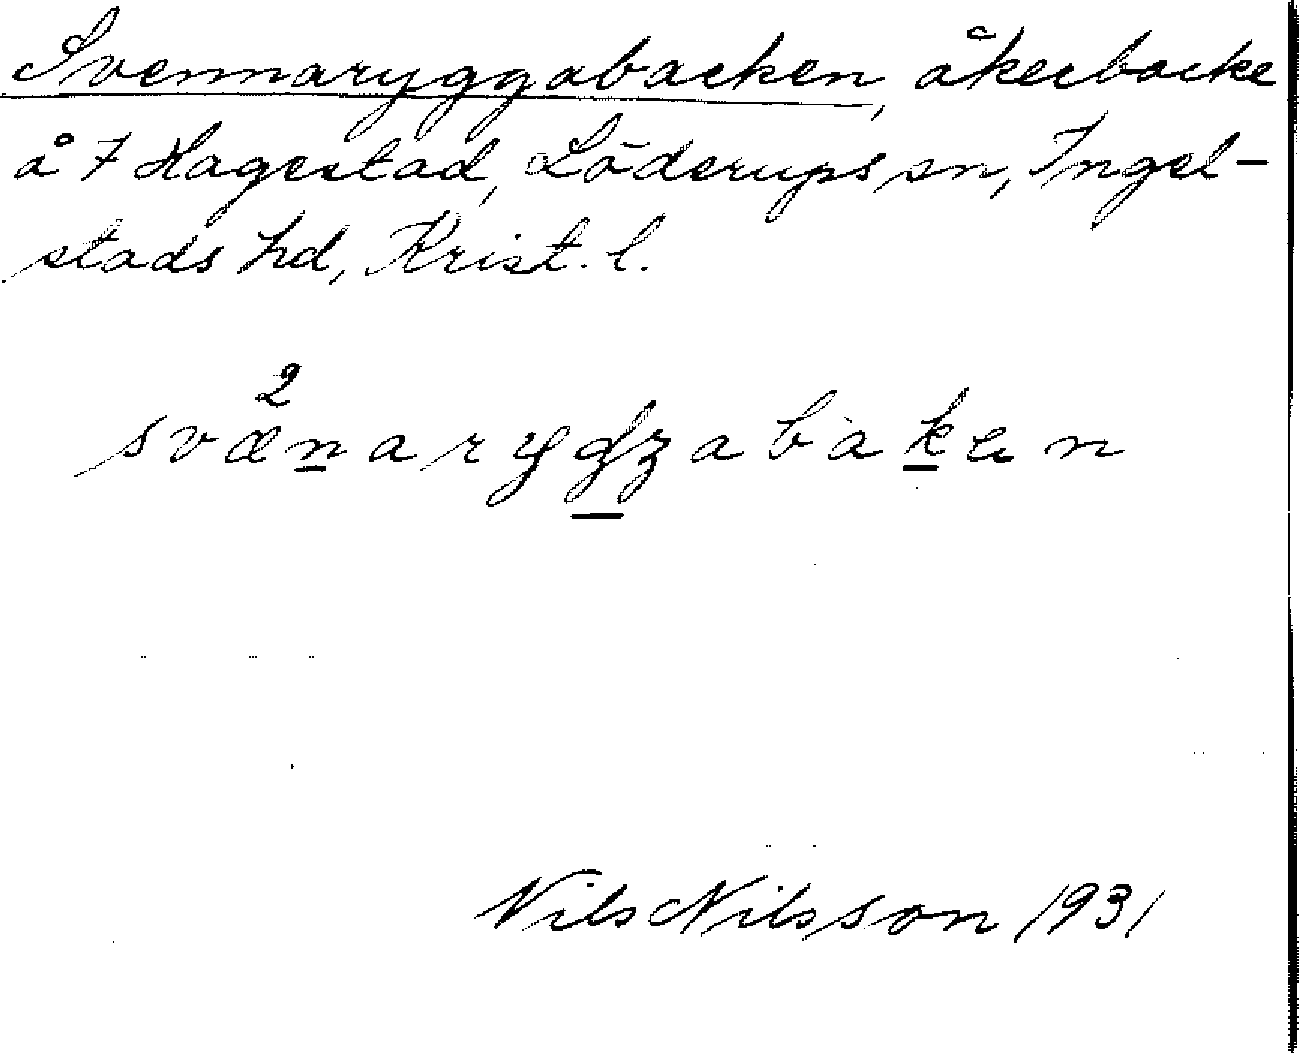 Svennaryggabacken, åkerbacke
å 7 Hagestad, Löderups sn, Ingel-
stads hd, Krist. l.
2
Nils Nilsson 1931